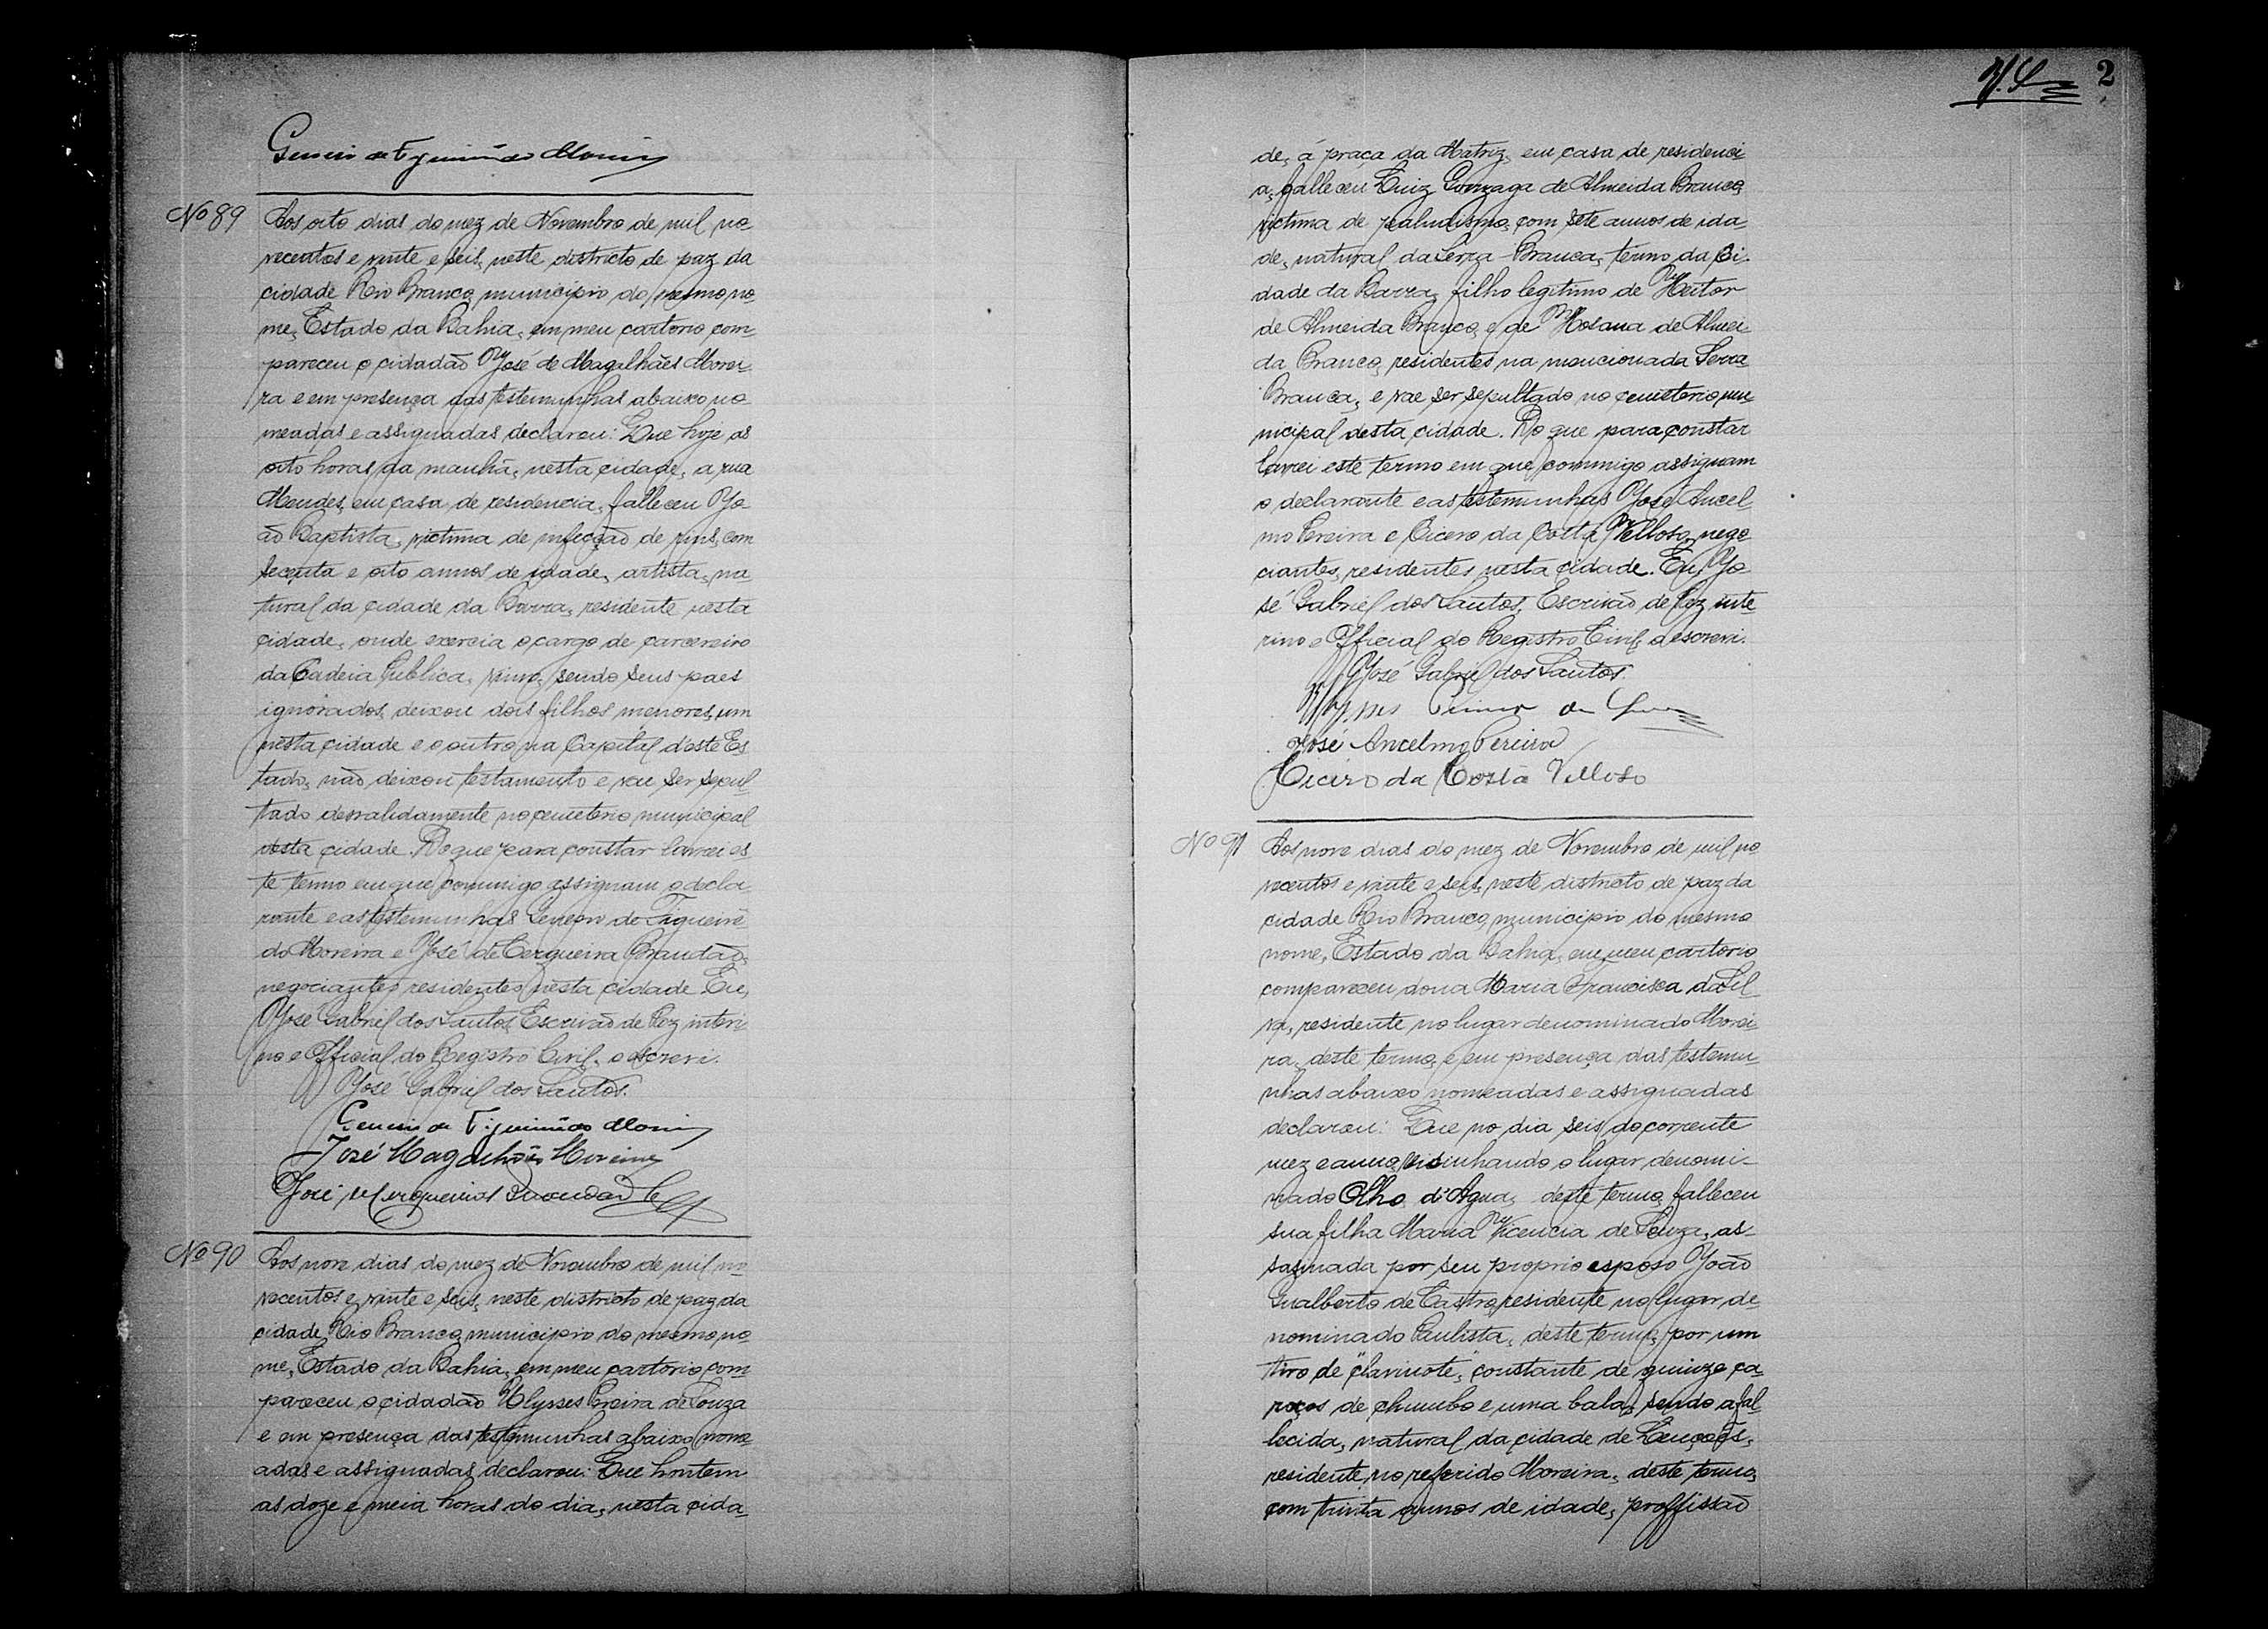 Genesio de Figueirêdo Moreira
Nº 89
Aos oito dias do mez de Novembro de mil no-
vecentos e vinte e seis, neste districto de paz da
cidade Rio Branco, municipio do mesmo no-
me, Estado da Bahia, em meu cartorio com-
pareceu o cidadão José de Magalhães Morei-
ra e em presença das testemunhas abaixo no-
meadas e assignadas declarou: Que hoje as
oito horas da manhã, nesta cidade, a rua
Mendes, em casa de residencia, falleceu Jo-
ão Baptista, victima de infecção de rins, com
secenta e oito annos de idade, artista, na-
tural da cidade da Barra, residente nesta
cidade, onde exercia o cargo de carcereiro
da Cadeia Publica, viuvo, sendo seus paes
ignorados, deixou dois filhos menores, um
nesta cidade e o outro na Capital d'este Es-
tado, não deixou testamento e vae ser sepul-
tado desvalidamente no cemeterio municipal
desta cidade. Do que para constar lavrei es-
te termo em que commigo assignam o decla-
rante e as testemunhas Genesio de Figueirê-
do Moreira e José de Cerqueira Brandão,
negociantes residentes nesta cidade. Eu,
José Gabriel dos Santos, Escrivão de Paz interi-
no e Official do Registro Civil, o escrevi.
José Gabriel dos Santos.
Genesio de Figueirêdo Moreira
José Magalhães Moreira
José de Cerqueira Brandão
Nº 90
Aos nove dias do mez de Novembro de mil no-
vecentos e vinte e seis, neste districto de paz da
cidade Rio Branco, municipio do mesmo no-
me, Estado da Bahia, em meu cartorio com-
pareceu o cidadão Ulysses Pereira de Souza
e em presença das testemunhas abaixo nome-
adas e assignadas declarou: Que hontem
as doze e meia horas do dia, nesta cida-
2
de, á praça da Matriz, em casa de residenci-
a, falleceu Luiz Gonzaga de Almeida Branco,
victima de paludismo, com sete annos de ida-
de, natural da Serra-Branca, termo da Ci-
dade da Barra, filho legitimo de Heitor
de Almeida Branco, e de Hosana de Almei-
da Branco, residentes na mencionada Serra-
Branca, e vae ser sepultado no cemeterio mu-
nicipal desta cidade. Do que para constar
lavrei este termo em que commigo assignam
o declarante e as testemunhas José Ancel-
mo Pereira e Cicero da Costa Velloso, nego-
ciantes, residentes nesta cidade. Eu, Jo-
sé Gabriel dos Santos, Escrivão de Paz inte-
rino e Official do Registro Civil, o escrevi.
José Gabriel dos Santos.
José Ancelmo Pereira
Cicero da Costa Velloso
Nº 91
Aos nove dias do mez de Novembro de mil no-
vecentos e vinte e seis, neste districto de paz da
cidade Rio Branco, municipio do mesmo
nome, Estado da Bahia, em meu cartorio
compareceu dona Maria Francisca da Sil-
va, residente no lugar denominado Morei-
ra, deste termo, e em presença das testemu-
nhas abaixo nomeadas e assignadas
declarou: Que no dia seis do corrente
mez e anno, visinhando o lugar denomi-
nado Olho d'Agua, deste termo, falleceu
sua filha Maria Vicencia de Souza, as-
sasinada por seu proprio esposo João
Gualberto de Castro, residente no lugar de-
nominado Paulista, deste termo, por um
tiro de "clavinote," constante de quinze ca-
roços de chumbo e uma bala, sendo a fal-
lecida, natural da cidade de Lençoes,
residente no referido Moreira, deste termo,
com trinta annos de idade, proffissão